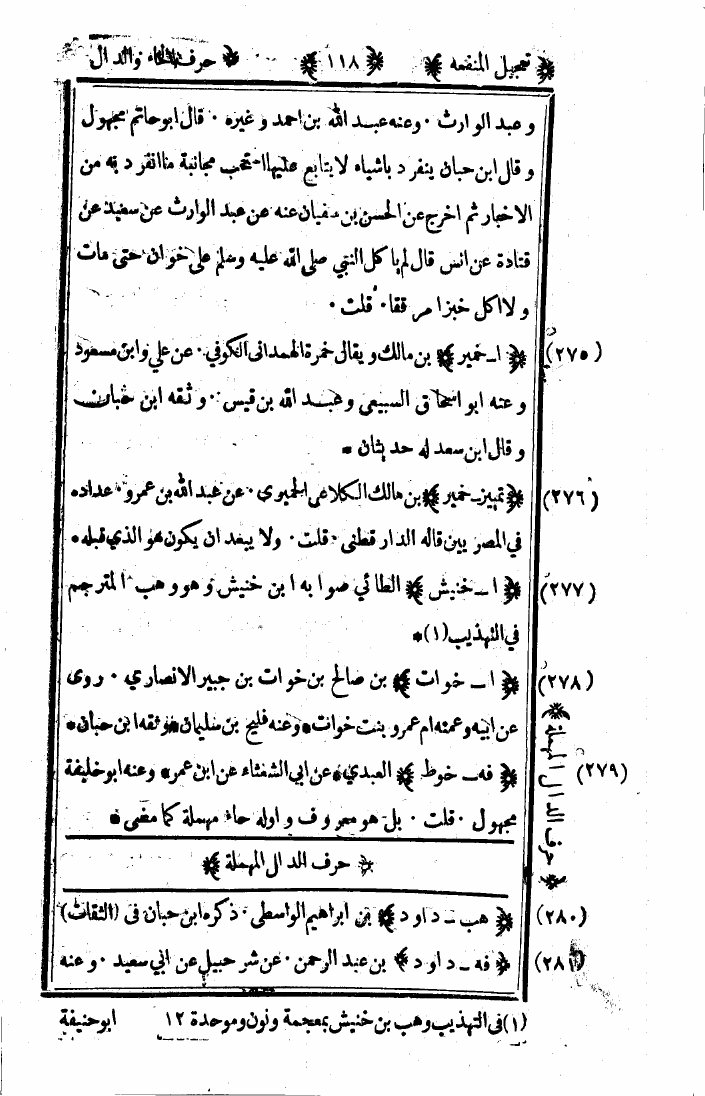 ﴿ تعجيل المنفعه ﴾ ﴿ ١١٨ ﴾ ﴿ حرف الخاء والدال
وعبد الوارث ٠ وعنه عبد الله بن احمد وغيره ٠ قال ابوحاتم مجهول
وقال ابن حبان ينفرد باشياء لا يتابع عليها استحب مجانبة ما انفرد به من
الاخبار ثم اخرج عن الحسن بن سفيان عنه عن عبد الوارث عن سعيد عن
قتادة عن انس قال لم ياكل النبي صلى الله عليه وسلم على خوان حتى مات
ولا اكل خبزا مرققا ٠ قلت ٠
(٢٧٥) ﴿ ا ـ خمير ﴾ بن مالك ويقال خمرة الهمدانى الكوفي ٠ عن علي وابن مسعود
وعنه ابو اسحاق السبيعي وعبد الله بن قيس ٠ وثقه ابن حبان
وقال ابن سعد له حديثان *
(٢٧٦) ﴿ تمييز ـ خمير ﴾ بن مالك الكلاعى الحميرى ٠ عن عبد الله بن عمرو ٠ عداده
في المصريين قاله الدارقطنى ٠ قلت ٠ ولا يبعد ان يكون هو الذي قبله *
(٢٧٧) ﴿ ا ـ خنيش ﴾ الطائي صوابه ابن خنيش وهو وهب المترجم
في التهذيب (١) *
(٢٧٨) ﴿ ا ـ خوات ﴾ بن صالح بن خوات بن جبير الانصاري ٠ روى
عن ابيه وعمته ام عمرو بنت خوات * وعنه فليح بن سليمان * وثقه ابن حبان *
(٢٧٩) ﴿ فه ـ خوط ﴾ العبدي * عن ابي الشعثاء عن ابن عمر * وعنه ابو خليفة
مجهول ٠ قلت ٠ بل هو معروف واوله حاء مهملة كما مضى *
﴿ حرف الدال المهملة ﴾
﴿ حرف الدال المهملة ﴾
(٢٨٠) ﴿ هب ـ داود ﴾ بن ابراهيم الواسطى ٠ ذكره ابن حبان فى (الثقات)
(٢٨١) ﴿ فه ـ داود ﴾ بن عبد الرحمن ٠ عن شرحبيل عن ابي سعيد ٠ وعنه
(١) في التهذيب وهب بن خنيش بمعجمة ونون وموحدة ١٢ ابوحنيفة